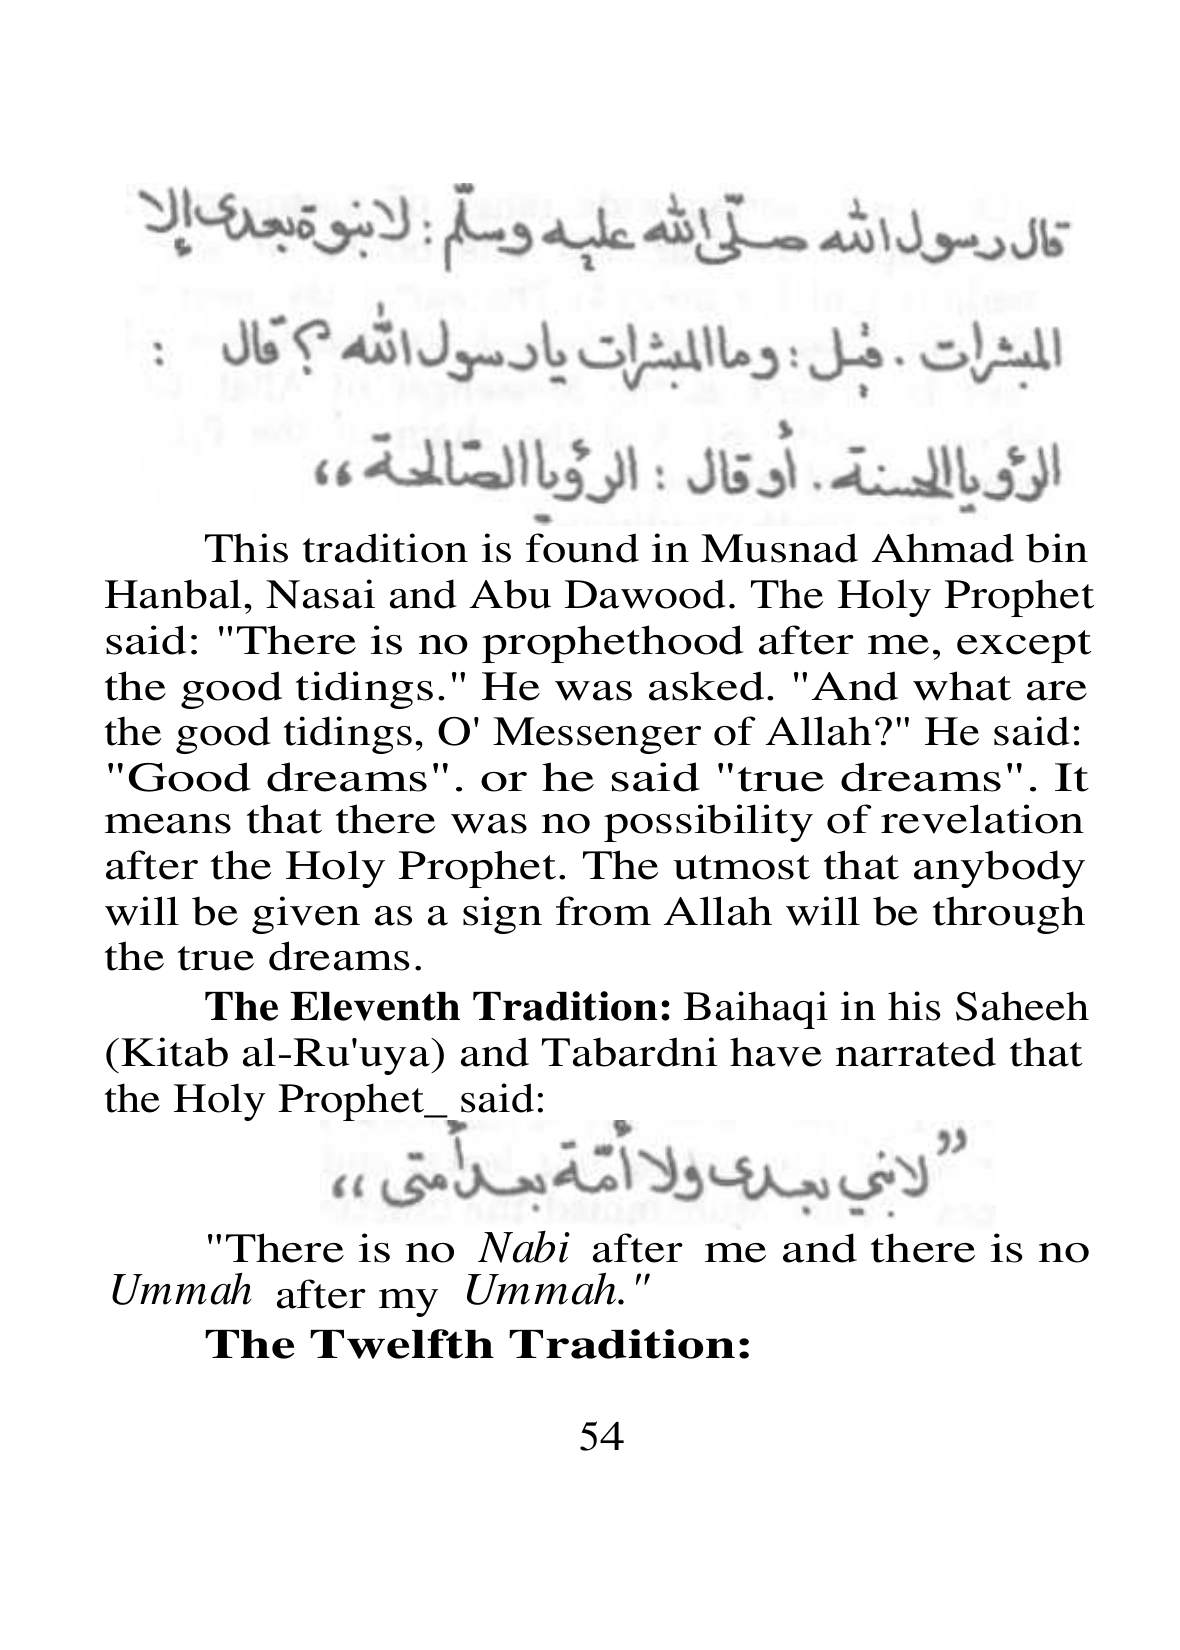 قال رسول الله صلّى الله عليه وسلّم : لا نبوة بعدى إلا
المبشرات . قيل : وما المبشرات يا رسول الله ؟ قال :
الرؤيا الحسنة . أو قال : الرؤيا الصّالحة ،،
This tradition is found in Musnad Ahmad bin
Hanbal, Nasai and Abu Dawood. The Holy Prophet
said: "There is no prophethood after me, except
the good tidings." He was asked. "And what are
the good tidings, O' Messenger of Allah?" He said:
"Good dreams". or he said "true dreams". It
means that there was no possibility of revelation
after the Holy Prophet. The utmost that anybody
will be given as a sign from Allah will be through
the true dreams.
The Eleventh Tradition: Baihaqi in his Saheeh
(Kitab al-Ru'uya) and Tabardni have narrated that
the Holy Prophet_ said:
”لا نبي بعدى ولا أمّة بعد أمتى ،،
"There is no Nabi after me and there is no
Ummah after my Ummah."
The Twelfth Tradition:
54